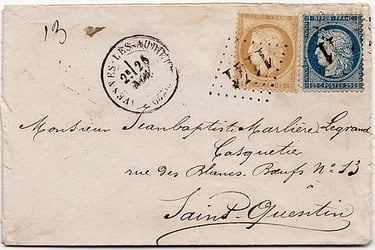 13
AVESNES-LES-AUBERT
2E
REPUB. FRANC.
REPUB. FRANC.
25 C POSTES 25 C
Monsieur Jeanbaptiste Marlière-Legrand
Casquetie
rue des Blancs Bœufs No 13
à
Saint-Quentin